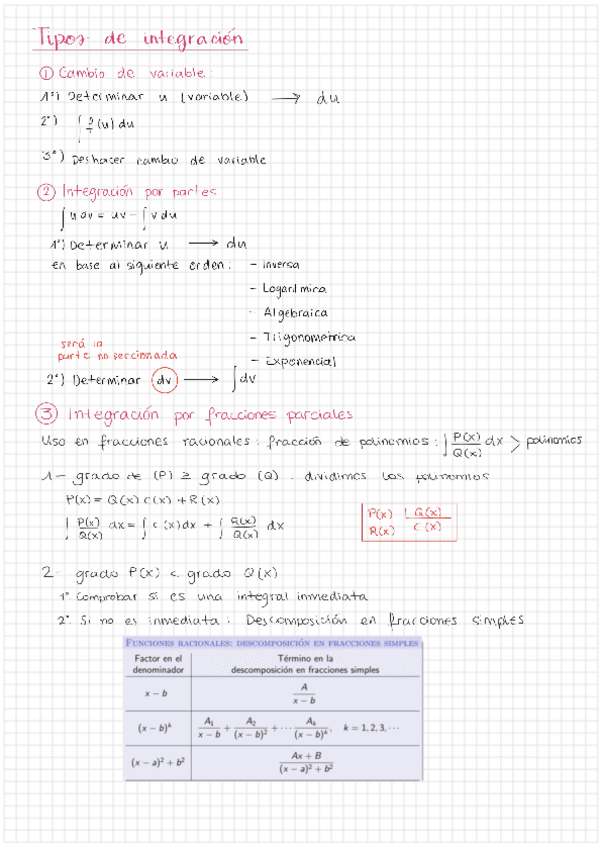 Tipos de integración
① Cambio de variable:
1º) Determinar u (variable) → du
2º) ∫ f(u) du
3º) Deshacer cambio de variable
② Integración por partes
∫ u dv = uv - ∫ v du
1º) Determinar u → du
en base al siguiente orden: - inversa
- Logarítmica
- Algebraica
- Trigonométrica
- Exponencial
será la
parte no seccionada
2º) Determinar dv → ∫ dv
③ Integración por fracciones parciales
Uso en fracciones racionales: fracción de polinomios: ∫ P(x)/Q(x) dx > polinomios
1- grado de (P) ≥ grado (Q). dividimos los polinomios
P(x) = Q(x) C(x) + R(x)
∫ P(x)/Q(x) dx = ∫ C(x) dx + ∫ R(x)/Q(x) dx
P(x) | Q(x)
R(x) C(x)
2- grado P(x) < grado Q(x)
1º. Comprobar si es una integral inmediata
2º. Si no es inmediata: Descomposición en fracciones simples
FUNCIONES RACIONALES: DESCOMPOSICIÓN EN FRACCIONES SIMPLES
Factor en el Término en la
denominador descomposición en fracciones simples
x − b A/(x − b)
(x − b)^k A₁/(x − b) + A₂/(x − b)² + ⋯ A_k/(x − b)^k, k = 1, 2, 3, ⋯
(x − a)² + b² (Ax + B)/((x − a)² + b²)